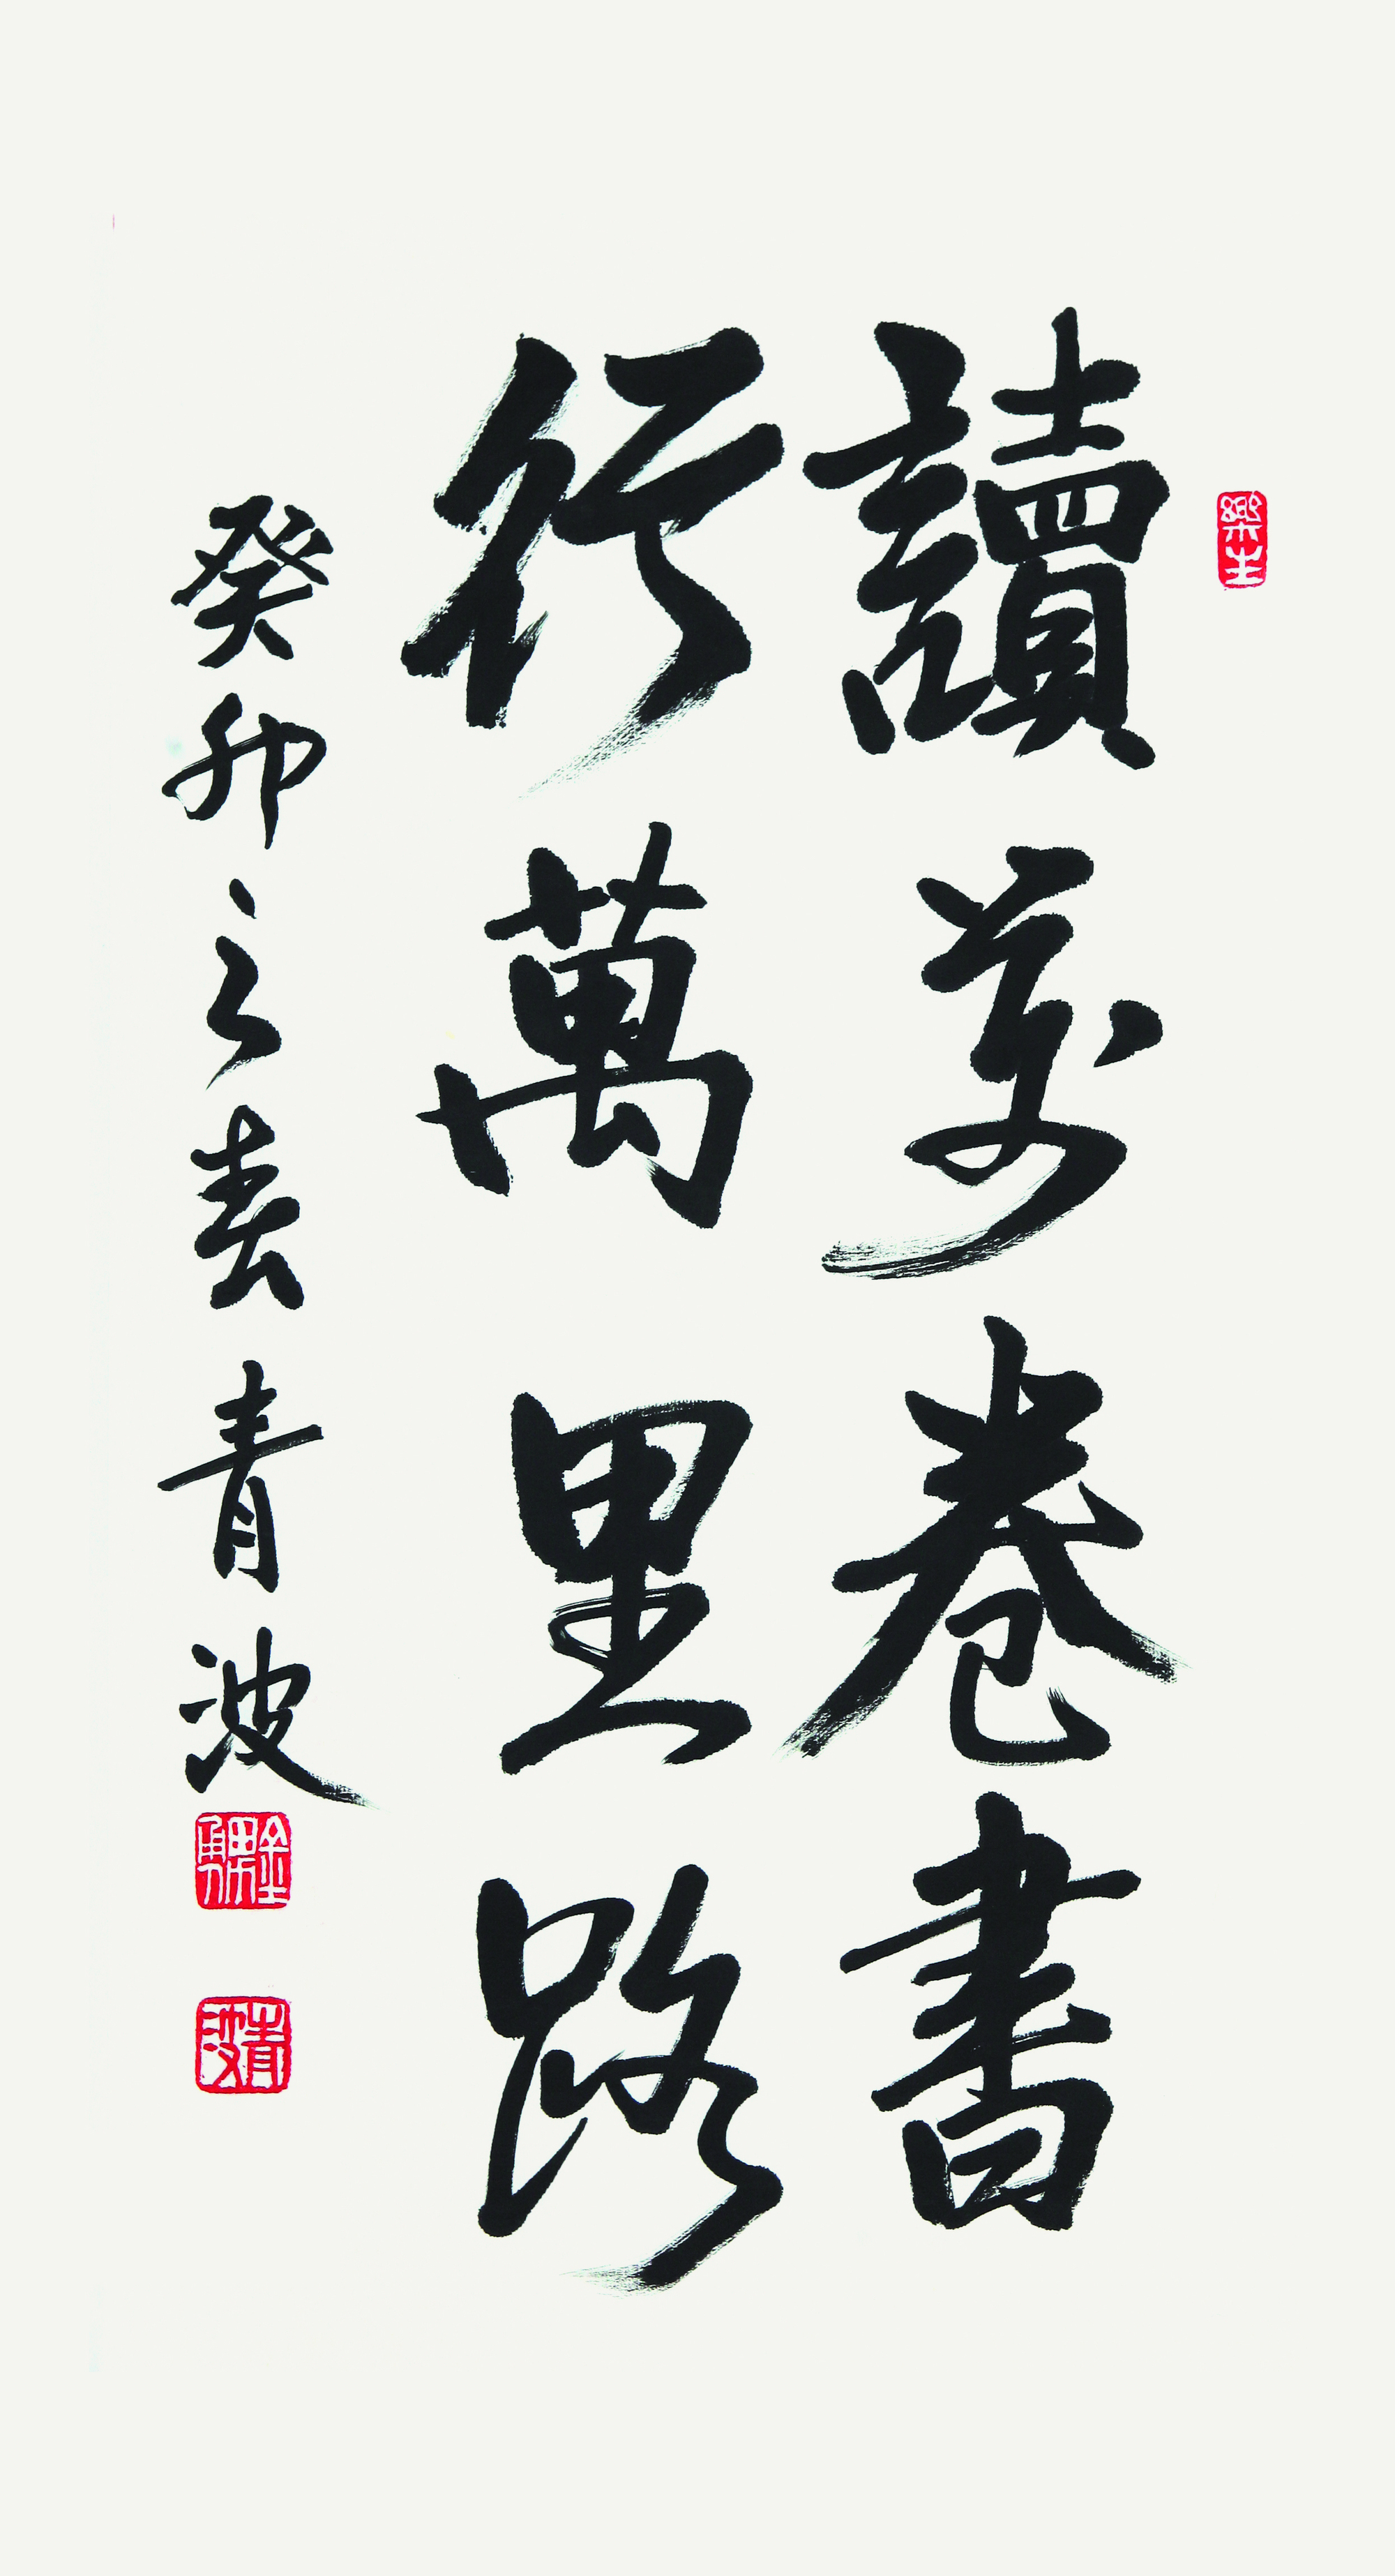 讀萬卷書
行萬里路
癸卯之春青波
青波